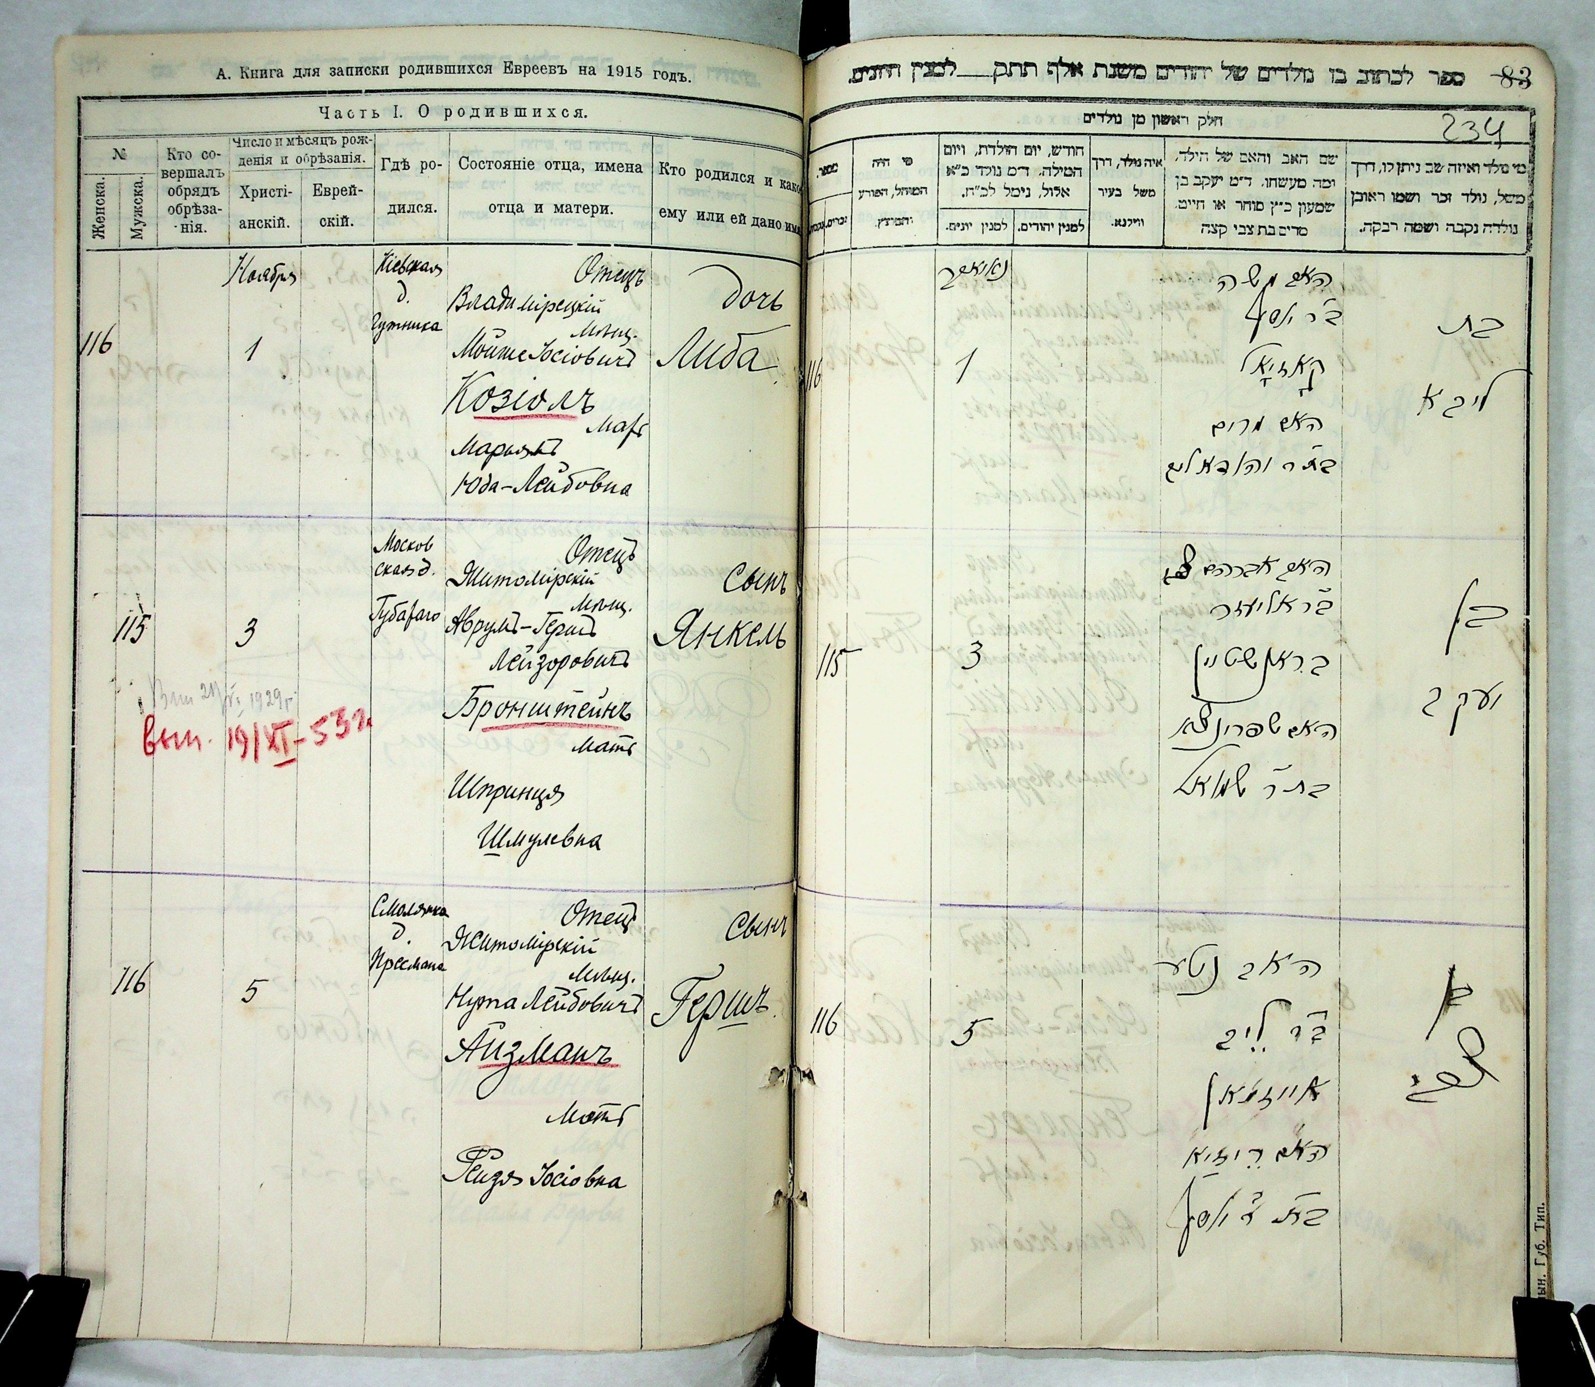 А. Книга для записки родившихся Евреевъ на 1915 годъ.
Часть I. О родившихся.
№
Женска.
Мужска.
Кто со-
вершалъ
обрядъ
обрѣза-
нія.
Число и мѣсяцъ рож-
денія и обрѣзанія.
Христі-
анскій.
Еврей-
скій.
Гдѣ ро-
дился.
Состояніе отца, имена
отца и матери.
Кто родился и како
ему или ей дано им
Ноября
116
1
Кіевская
д.
Гутника
Отецъ
Владимірецкій
мѣщ.
Мойше Іосіовичъ
Козіолъ
Мать
Марьямъ
Юда-Лейбовна
дочь
Либа
115
3
Москов
ская д.
Отецъ
Житомірскій
мѣщ.
Аврумъ-Гершъ
Лейзоровичъ
Бронштейнъ
Мать
Шпринця
Шмулевна
Сынъ
Янкель
1929 г.
вып. 19/XI-53г.
116
5
Смолянка
д.
Пресмана
Отецъ
Житомірскій
мѣщ.
Нута Лейбовичъ
Айзманъ
Мать
Рейзя Іосіовна
Сынъ
Гершъ
ספר לכתוב בו נולדים של יהודים משנת אלף תתק למנין היונים
83
234
חלק ראשון מן נולדים
מספר.
מי היה
המוהל, הפורע
והמוצץ.
חודש, יום הולדת, ויום
המילה. ד״מ נולד כ״א
אלול, נימל לכ״ח.
למנין יהודים.
למנין יונים.
איה נולד, דרך
משל בעיר
ווילנא.
שם האב והאם של הילד,
ומה מעשהו. ד״מ יעקב בן
שמעון כ״ץ סוחר או חייט.
מרים בת צבי קצה
מי נולד ואיזה שם ניתן לו, דרך
משל, נולד זכר ושמו ראובן
נולדה נקבה ושמה רבקה.
116
1
האב משה
ב״ר יוסף
קאזיאל
האם מרים
בת
ליבא
115
3
האב אברהם צבי
ב״ר אליעזר
בראנשטיין
האם שפרינצא
בת ר׳ שמואל
בן
יעקב
116
5
האב נטע
ב״ר ליב
אייזמאן
האם רייזיא
בת ר׳ יוסף
בן
צבי
ын. Губ. Тип.